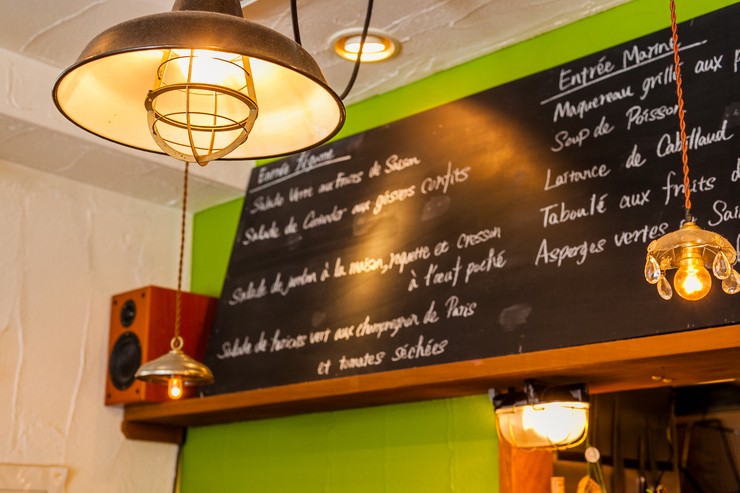 Entrée légume
Salade Verte aux Fruits de Saison
Salade de Canard aux gésiers confits
Salade de jambon à la maison, roquette et cresson
à l'œuf poché
Salade de haricots vert aux champignon de Paris
et tomates séchées
Entrée Marine
Maquereau grillé aux p
Soup de Poisson
Laitance de Cabillaud
Taboulé aux fruits d
Asperges vertes Sai